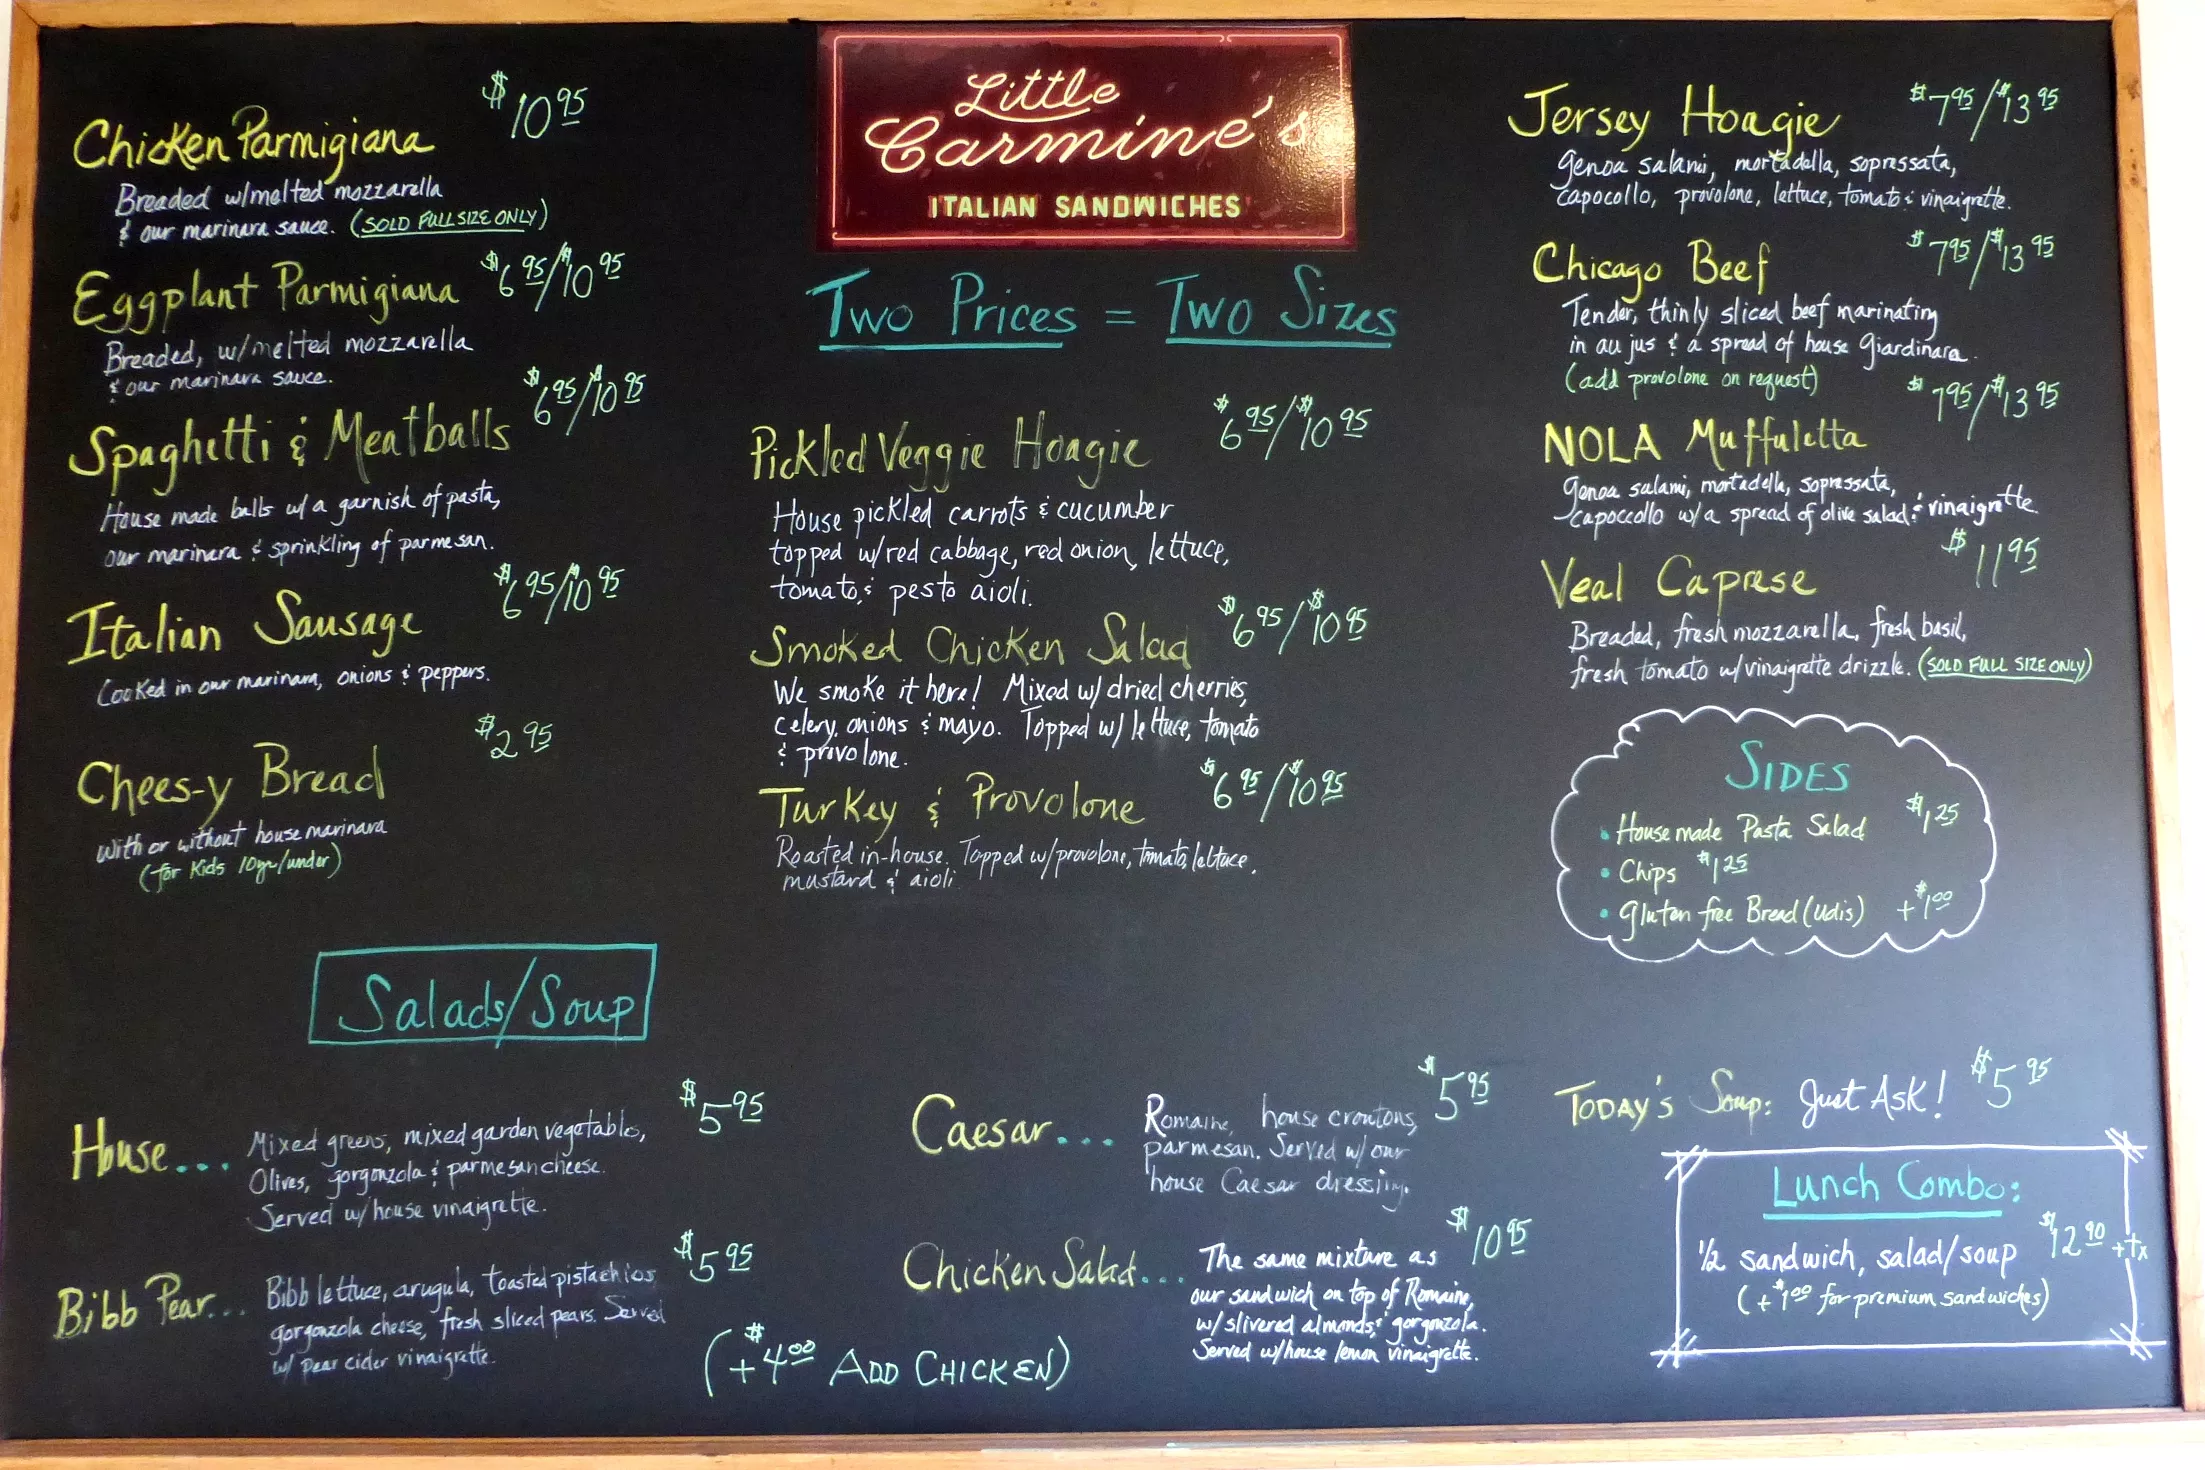 Little
Carmine's
ITALIAN SANDWICHES
Two Prices = Two Sizes
Chicken Parmigiana $10.95
Breaded w/melted mozzarella
& our marinara sauce. (SOLD FULL SIZE ONLY)
Eggplant Parmigiana $6.95/$10.95
Breaded, w/melted mozzarella
& our marinara sauce.
Spaghetti & Meatballs $6.95/$10.95
House made balls w/a garnish of pasta,
our marinara & sprinkling of parmesan.
Italian Sausage $6.95/$10.95
Cooked in our marinara, onions & peppers.
Chees-y Bread $2.95
With or without house marinara
(for Kids 10yr/under)
Pickled Veggie Hoagie $6.95/$10.95
House pickled carrots & cucumber
topped w/red cabbage, red onion, lettuce,
tomato, & pesto aioli.
Smoked Chicken Salad $6.95/$10.95
We smoke it here! Mixed w/ dried cherries,
celery, onions & mayo. Topped w/ lettuce, tomato
& provolone.
Turkey & Provolone $6.95/$10.95
Roasted in-house. Topped w/provolone, tomato, lettuce,
mustard & aioli
Jersey Hoagie $7.95/$13.95
Genoa salami, mortadella, sopressata,
capocollo, provolone, lettuce, tomato & vinaigrette.
Chicago Beef $7.95/$13.95
Tender, thinly sliced beef marinating
in au jus & a spread of house Giardinara.
(add provolone on request)
NOLA Muffuletta $7.95/$13.95
Genoa salami, mortadella, sopressata,
capoccollo w/a spread of olive salad & vinaigrette.
Veal Caprese $11.95
Breaded, fresh mozzarella, fresh basil,
fresh tomato w/vinaigrette drizzle. (SOLD FULL SIZE ONLY)
SIDES
• House made Pasta Salad $1.25
• Chips $1.25
• Gluten free Bread (Udis) +$1.00
Salads/Soup
House... $5.95
Mixed greens, mixed garden vegetables,
Olives, gorgonzola & parmesan cheese.
Served w/house vinaigrette.
Bibb Pear... $5.95
Bibb lettuce, arugula, toasted pistachios
gorgonzola cheese, fresh sliced pears. Served
w/ pear cider vinaigrette.
Caesar... $5.95
Romaine, house croutons,
parmesan. Served w/ our
house Caesar dressing.
Chicken Salad... $10.95
The same mixture as
our sandwich on top of Romaine,
w/slivered almonds & gorgonzola.
Served w/house lemon vinaigrette.
(+$4.00 ADD CHICKEN)
TODAY'S Soup: Just Ask! $5.95
Lunch Combo:
1/2 sandwich, salad/soup $12.90 +tx
(+$1.00 for premium sandwiches)